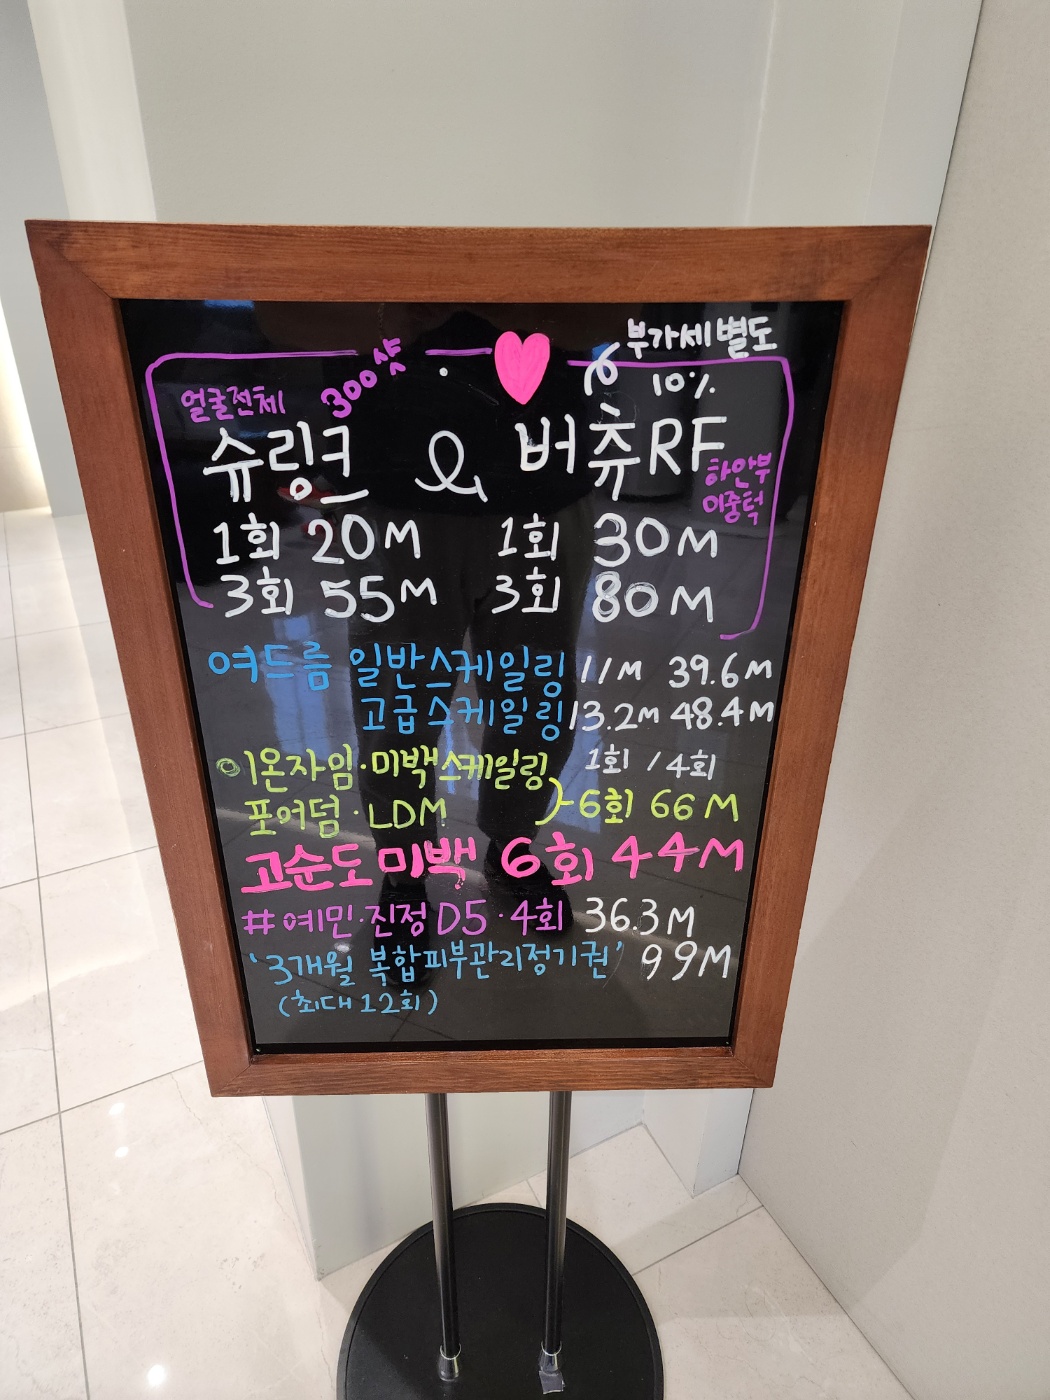 부가세 별도
10%
얼굴전체 300샷
슈링크 & 버츄RF
하안부
이중턱
1회 20M 1회 30M
3회 55M 3회 80M
여드름 일반스케일링 11M 39.6M
고급스케일링 13.2M 48.4M
1회 / 4회
이온자임·미백스케일링
포어덤·LDM 6회 66M
고순도미백 6회 44M
#예민·진정 D5·4회 36.3M
'3개월 복합피부관리정기권' 99M
(최대 12회)